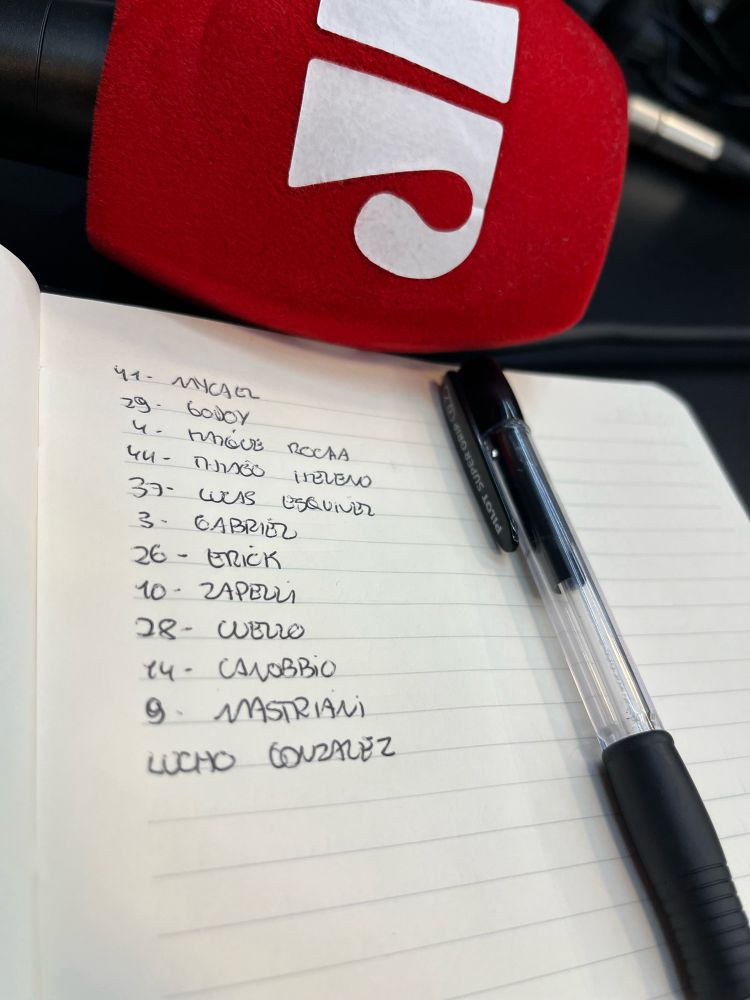 41- MYCAEL
29- GODOY
4- KAIQUE ROCHA
44- THIAGO HELENO
37- LUCAS ESQUIVEL
3- GABRIEL
26- ERICK
10- ZAPELLI
28- CUELLO
14- CANOBBIO
9- MASTRIANI
LUCHO GONZALEZ
PILOT SUPER GRIP